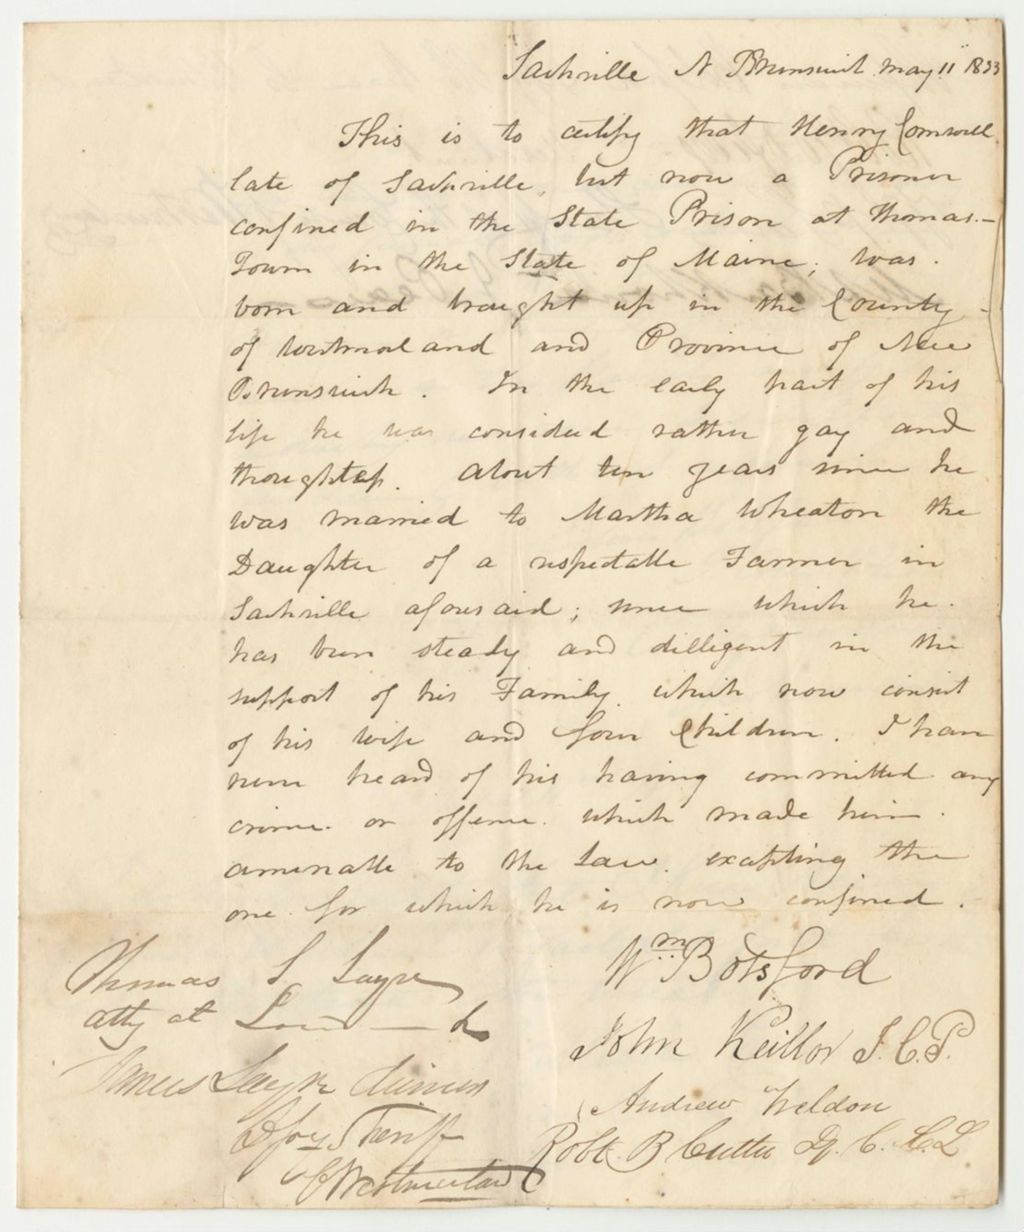 Sackville N Brunswick May 11" 1833
This is to certify that Henry Cornwell
late of Sackville, but now a Prisoner
confined in the State Prison at Thomas-
Town in the State of Maine; was
born and brought up in the County
of Westmorland and Province of New
Brunswick. In the early part of his
life he was considered rather gay and
thoughtless. About ten years since he
was married to Martha Wheaton the
Daughter of a respectable Farmer in
Sackville aforesaid; since which he
has been steady and dilligent in the
support of his Family which now consist
of his wife and four Children. I have
never heard of his having committed any
crime or offence which made him
amenable to the Law excepting the
one for which he is now confined.
Wm Botsford
Thomas S Sayre
Atty at Law
John Keillor J.C.P.
James Sayre
Andrew Weldon
Dpy Sheriff
Robt B Cutler
Westmorland